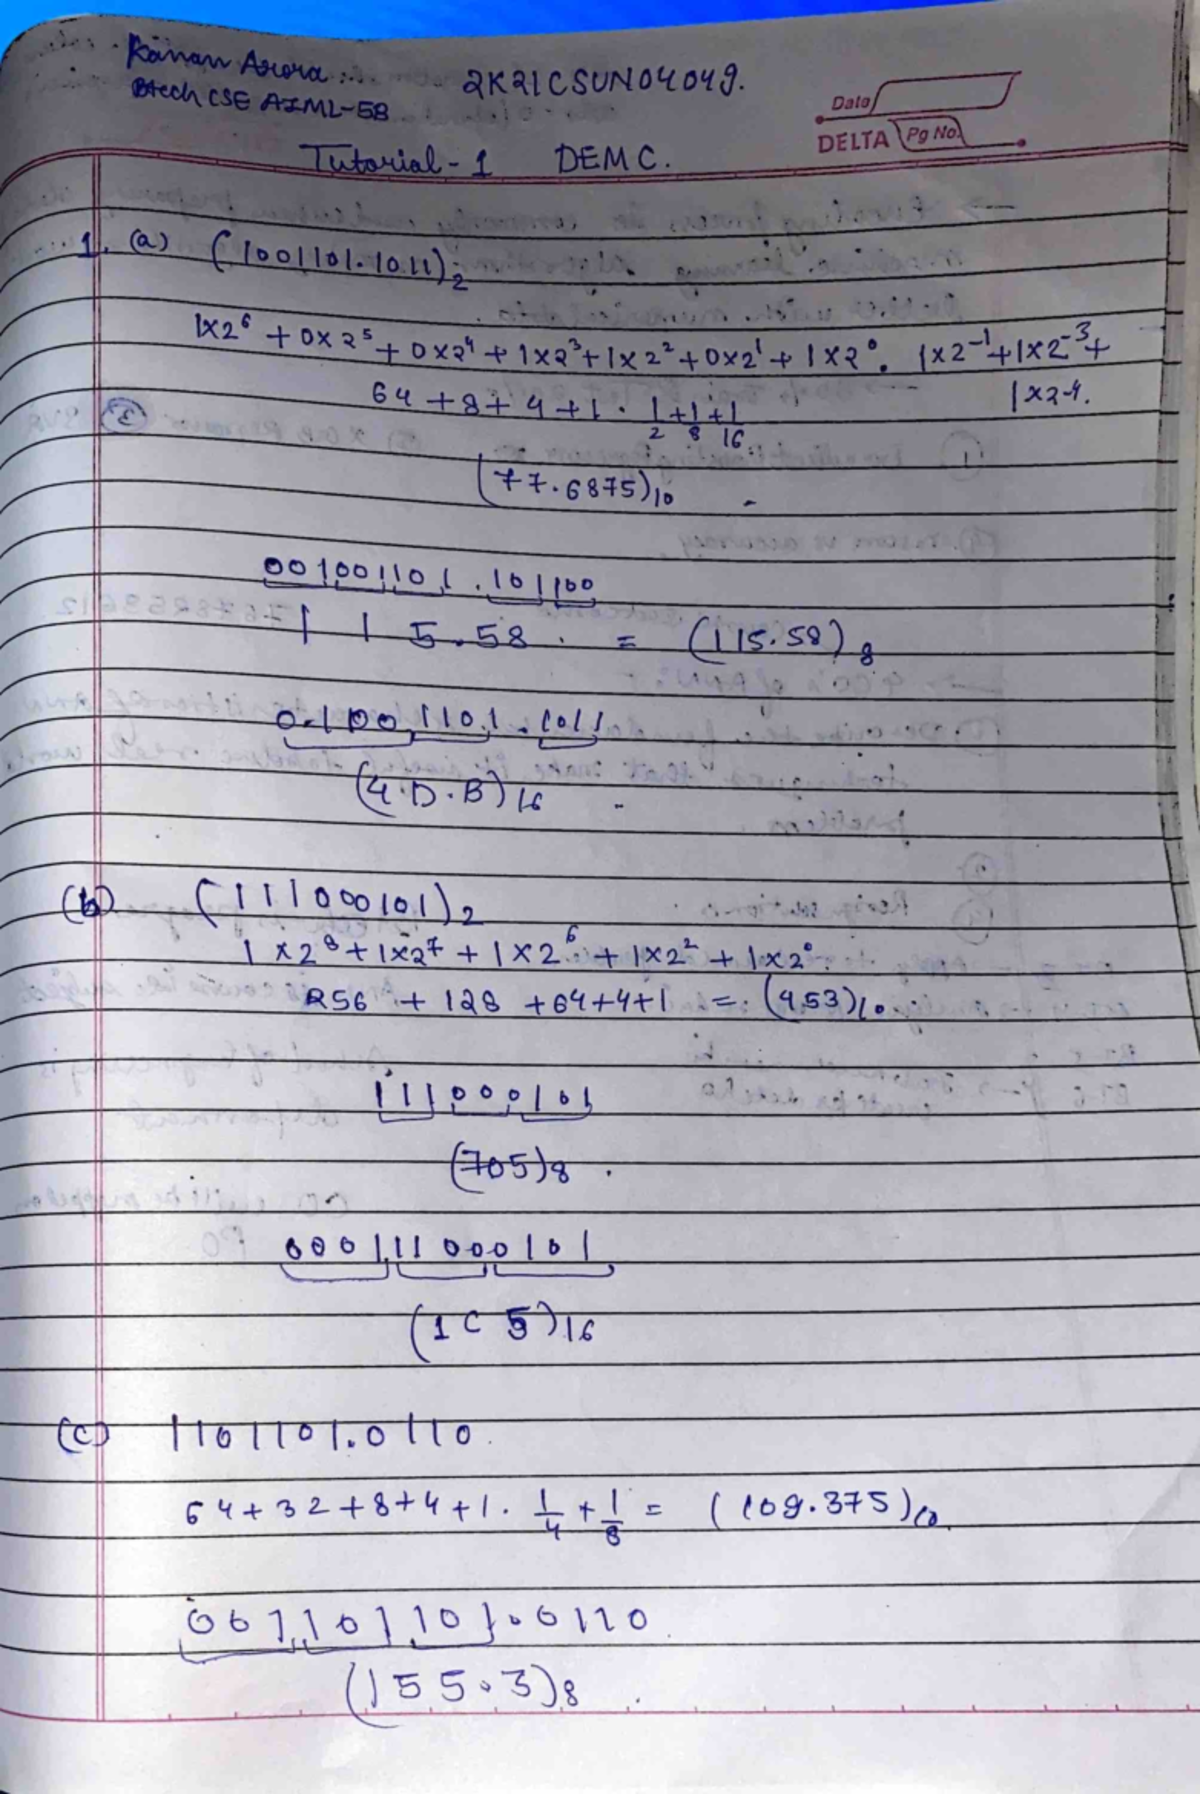 Kanan Arora
Btech CSE AIML-5B
2K21CSUN04049.
Date
DELTA Pg No.
Tutorial - 1 DEMC.
1. (a) (1001101.1011)2
1x2^6 + 0x2^5 + 0x2^4 + 1x2^3 + 1x2^2 + 0x2^1 + 1x2^0 . 1x2^-1 + 1x2^-3 +
1x2-4.
64 + 8 + 4 + 1 . 1/2 + 1/8 + 1/16
(77.6875)10
001001101.101100
1 1 5.58 = (115.58)8
01001101.1011
(4D.B)16
(b) (111000101)2
1x2^8 + 1x2^7 + 1x2^6 + 1x2^2 + 1x2^0.
256 + 128 + 64+4+1 = (453)10
111000101
(705)8
000111000101
(1C5)16
(c) 1101101.0110
64+32+8+4+1. 1/4 + 1/8 = (109.375)10
001101101.0110
(155.3)8